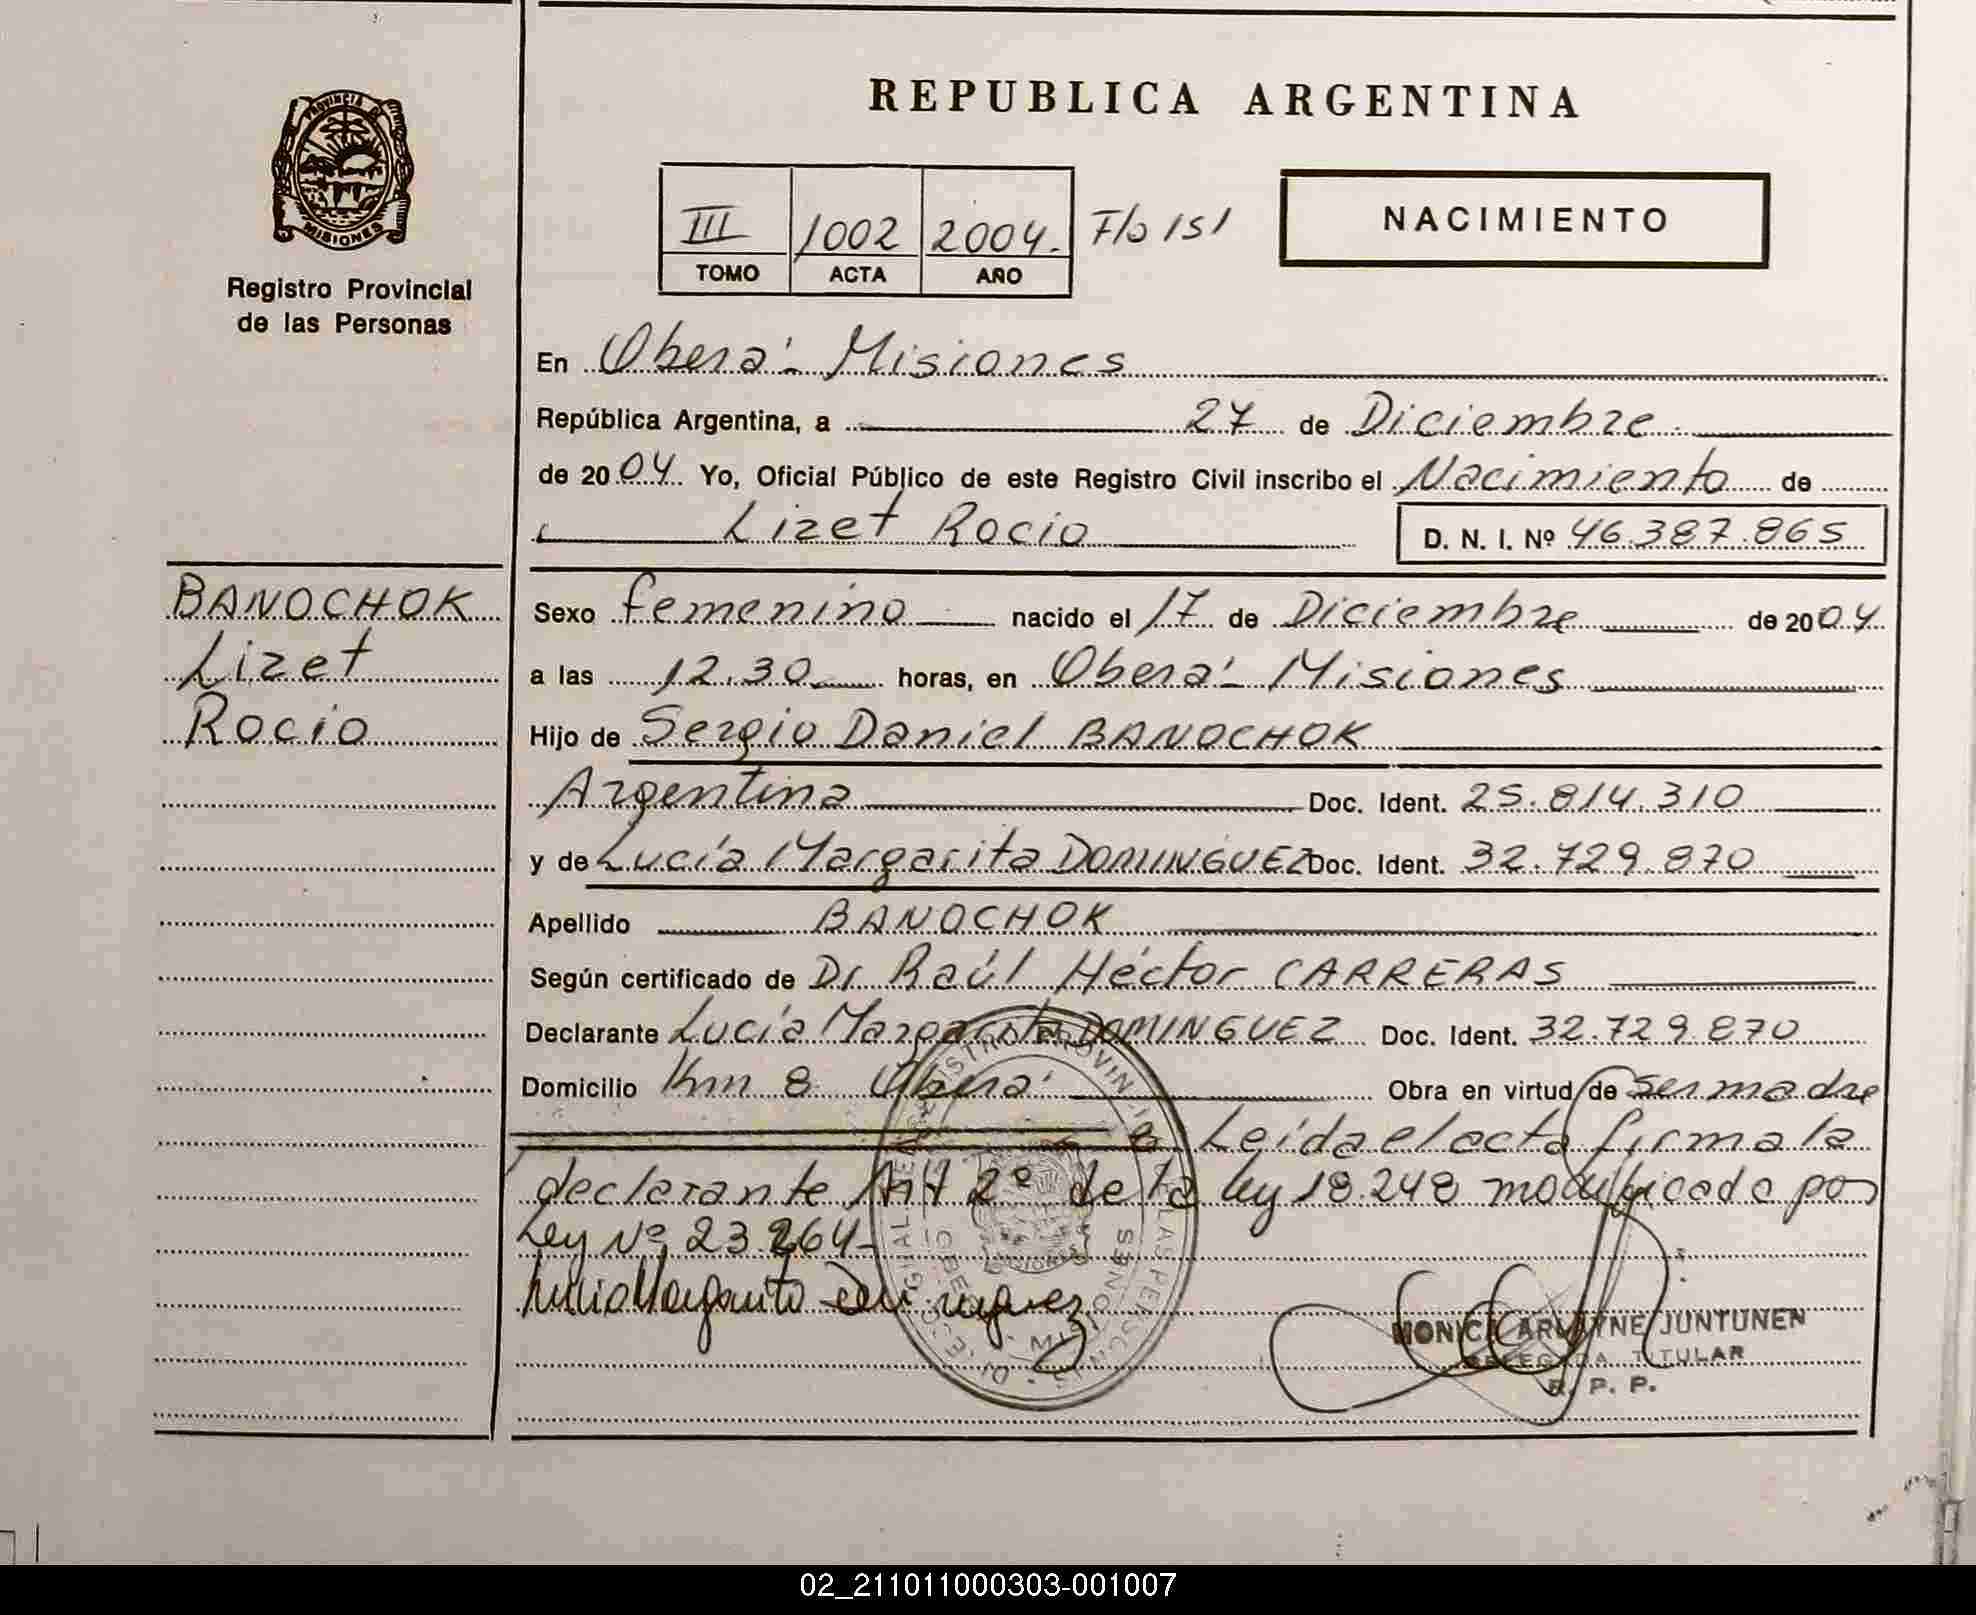 PROVINCIA DE
MISIONES
Registro Provincial
de las Personas
REPUBLICA ARGENTINA
III 1002 2004. F/o 151
TOMO ACTA AÑO
NACIMIENTO
En Oberá - Misiones
República Argentina, a 27 de Diciembre.
de 2004. Yo, Oficial Público de este Registro Civil inscribo el Nacimiento de
Lizet Rocio D. N. I. Nº 46.387.865
BANOCHOK
Lizet
Rocio
Sexo femenino nacido el 17 de Diciembre de 2004
a las 12.30 horas, en Oberá - Misiones
Hijo de Sergio Daniel BANOCHOK
Argentina Doc. Ident. 25.814.310
y de Lucía Margarita DOMINGUEZ Doc. Ident. 32.729.870
Apellido BANOCHOK
Según certificado de Dr Raúl Héctor CARRERAS
Declarante Lucía Margarita DOMINGUEZ Doc. Ident. 32.729.870
Domicilio Km 8 Oberá Obra en virtud de Ser madre
Leída el acta firma la
declarante Art 2º de la ley 18.248 modificada por
Ley Nº 23.264-
MONICA ARLAYNE JUNTUNEN
DELEGADA TITULAR
R. P. P.
02_211011000303-001007